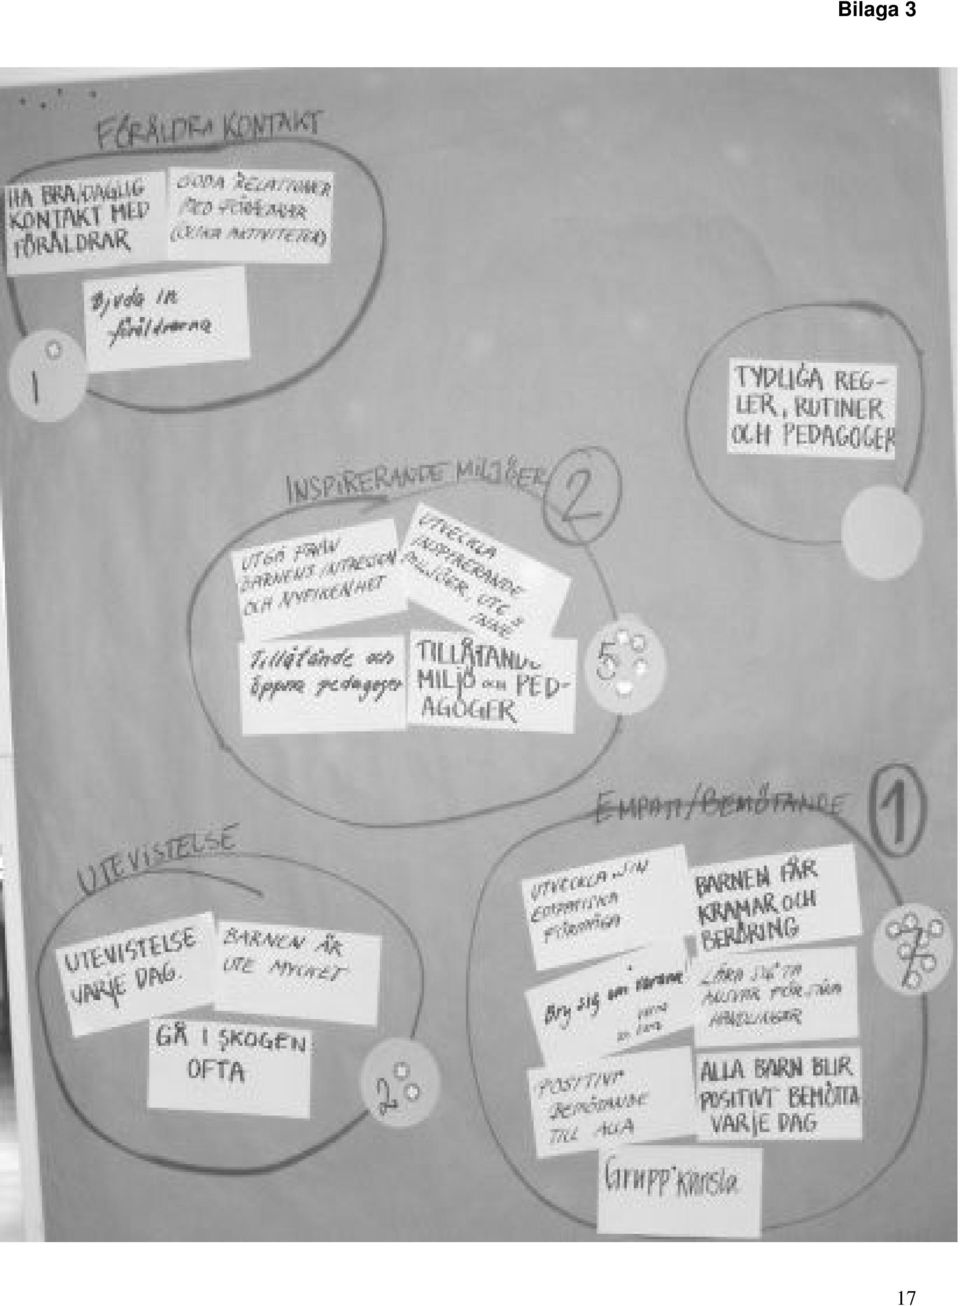 Bilaga 3
FÖRÄLDRA KONTAKT
HA BRA, DAGLIG
KONTAKT MED
FÖRÄLDRAR
GODA RELATIONER
MED FÖRÄLDRAR
(OLIKA AKTIVITETER)
Bjuda in
föräldrarna
1
TYDLIGA REG-
LER, RUTINER
OCH PEDAGOGER
INSPIRERANDE MILJÖER
2
UTGÅ FRÅN
BARNENS INTRESSEN
OCH NYFIKENHET
UTVECKLA
INSPIRERANDE
MILJÖER, UTE &
INNE
Tillåtande och
öppna pedagoger
TILLÅTANDE
MILJÖ och PED-
AGOGER
5
EMPATI/BEMÖTANDE
1
UTVECKLA SIN
EMPATISKA
FÖRMÅGA
BARNEN FÅR
KRAMAR OCH
BERÖRING
7
Bry sig om varandra
LÄRA SIG TA
ANSVAR FÖR SINA
HANDLINGAR
POSITIVT
BEMÖTANDE
TILL ALLA
ALLA BARN BLIR
POSITIVT BEMÖTTA
VARJE DAG
Gruppkänsla
UTEVISTELSE
UTEVISTELSE
VARJE DAG.
BARNEN ÄR
UTE MYCKET
GÅ I SKOGEN
OFTA
2
17